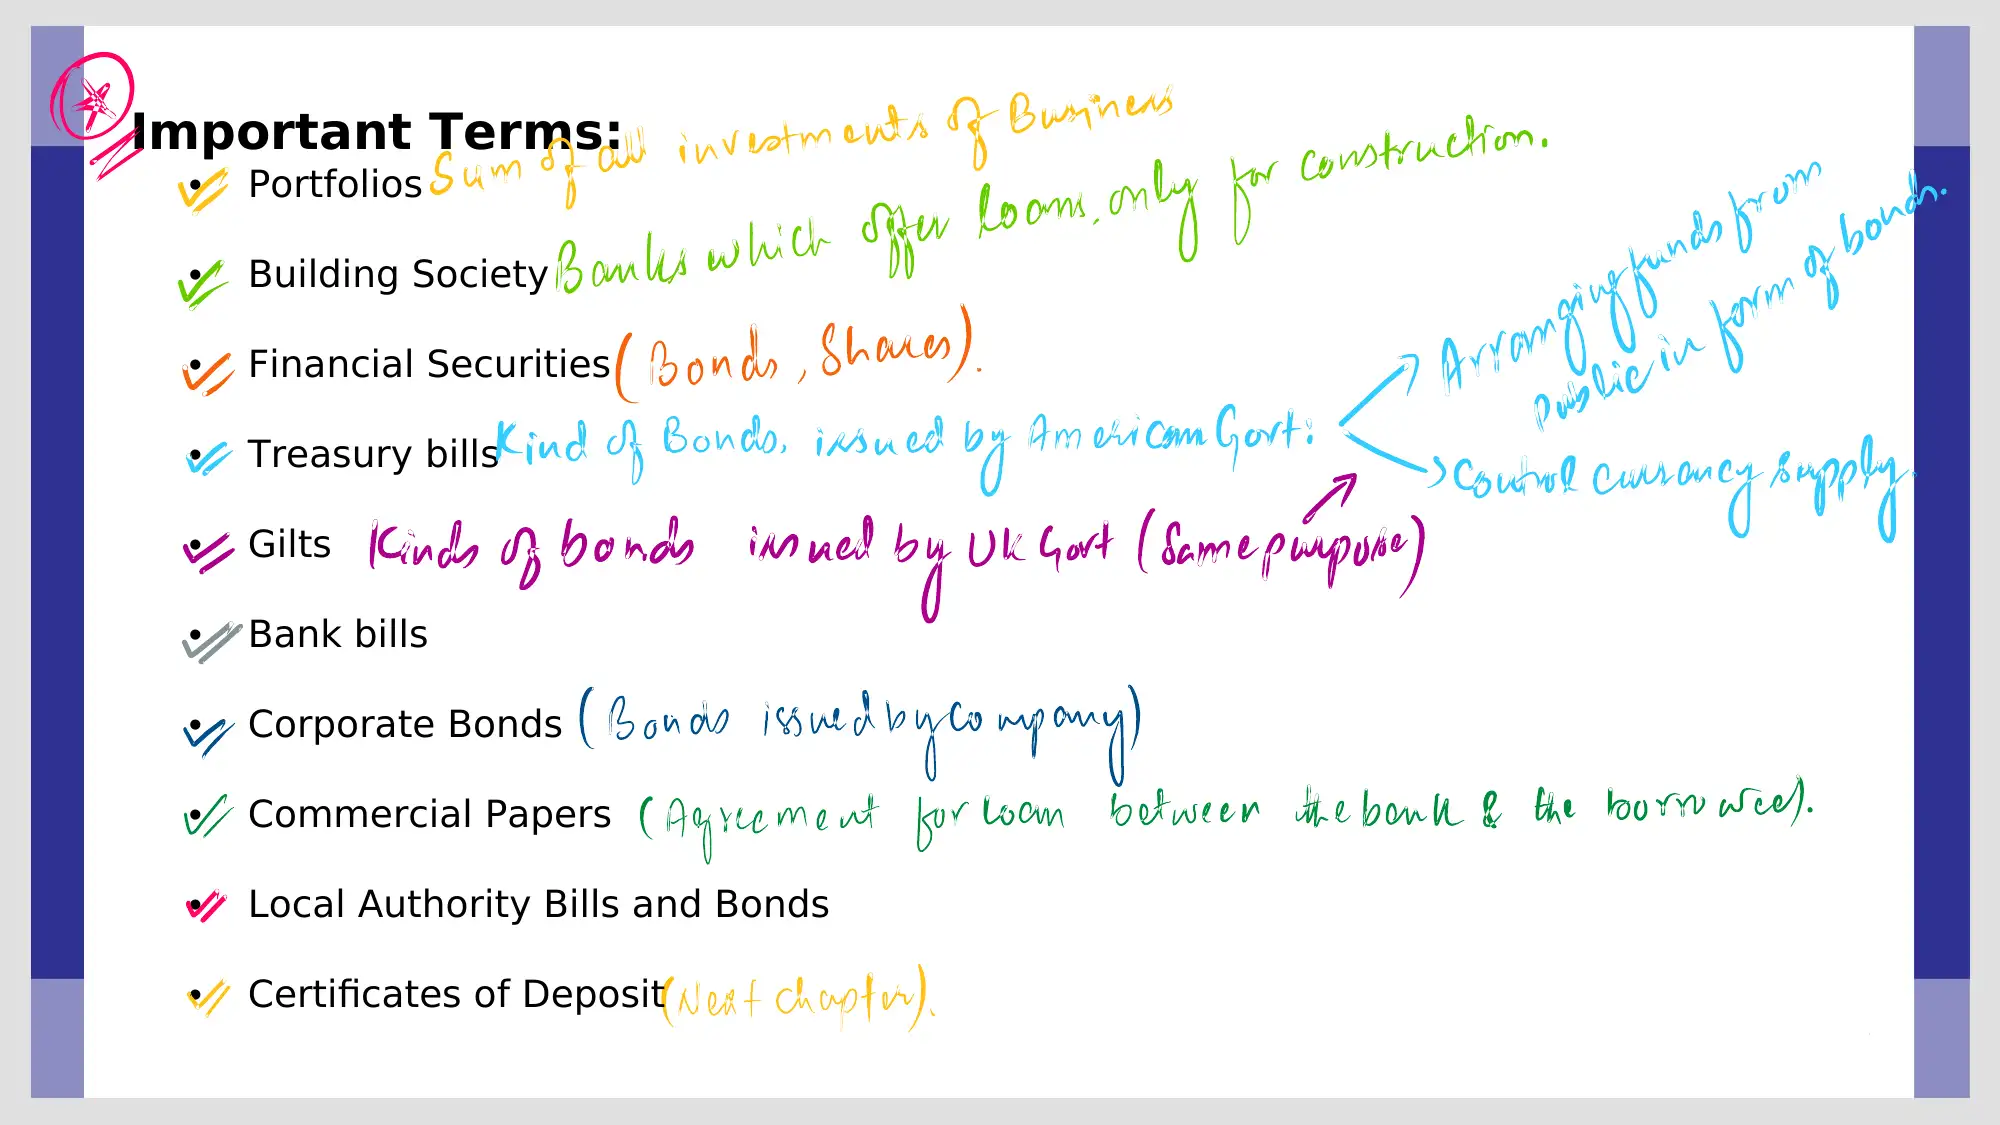 Important Terms:
• Portfolios Sum of all investments of Business
• Building Society Banks which offer loans, only for construction.
• Financial Securities (Bonds, Shares).
• Treasury bills Kind of Bonds, issued by American Govt:
Arranging funds from
public in form of bonds.
Control currancy supply.
• Gilts Kinds of bonds issued by UK Govt (Same purpose)
• Bank bills
• Corporate Bonds (Bonds issued by company)
• Commercial Papers (Agreement for loan between the bank & the borrower).
• Local Authority Bills and Bonds
• Certificates of Deposit (Next chapter).